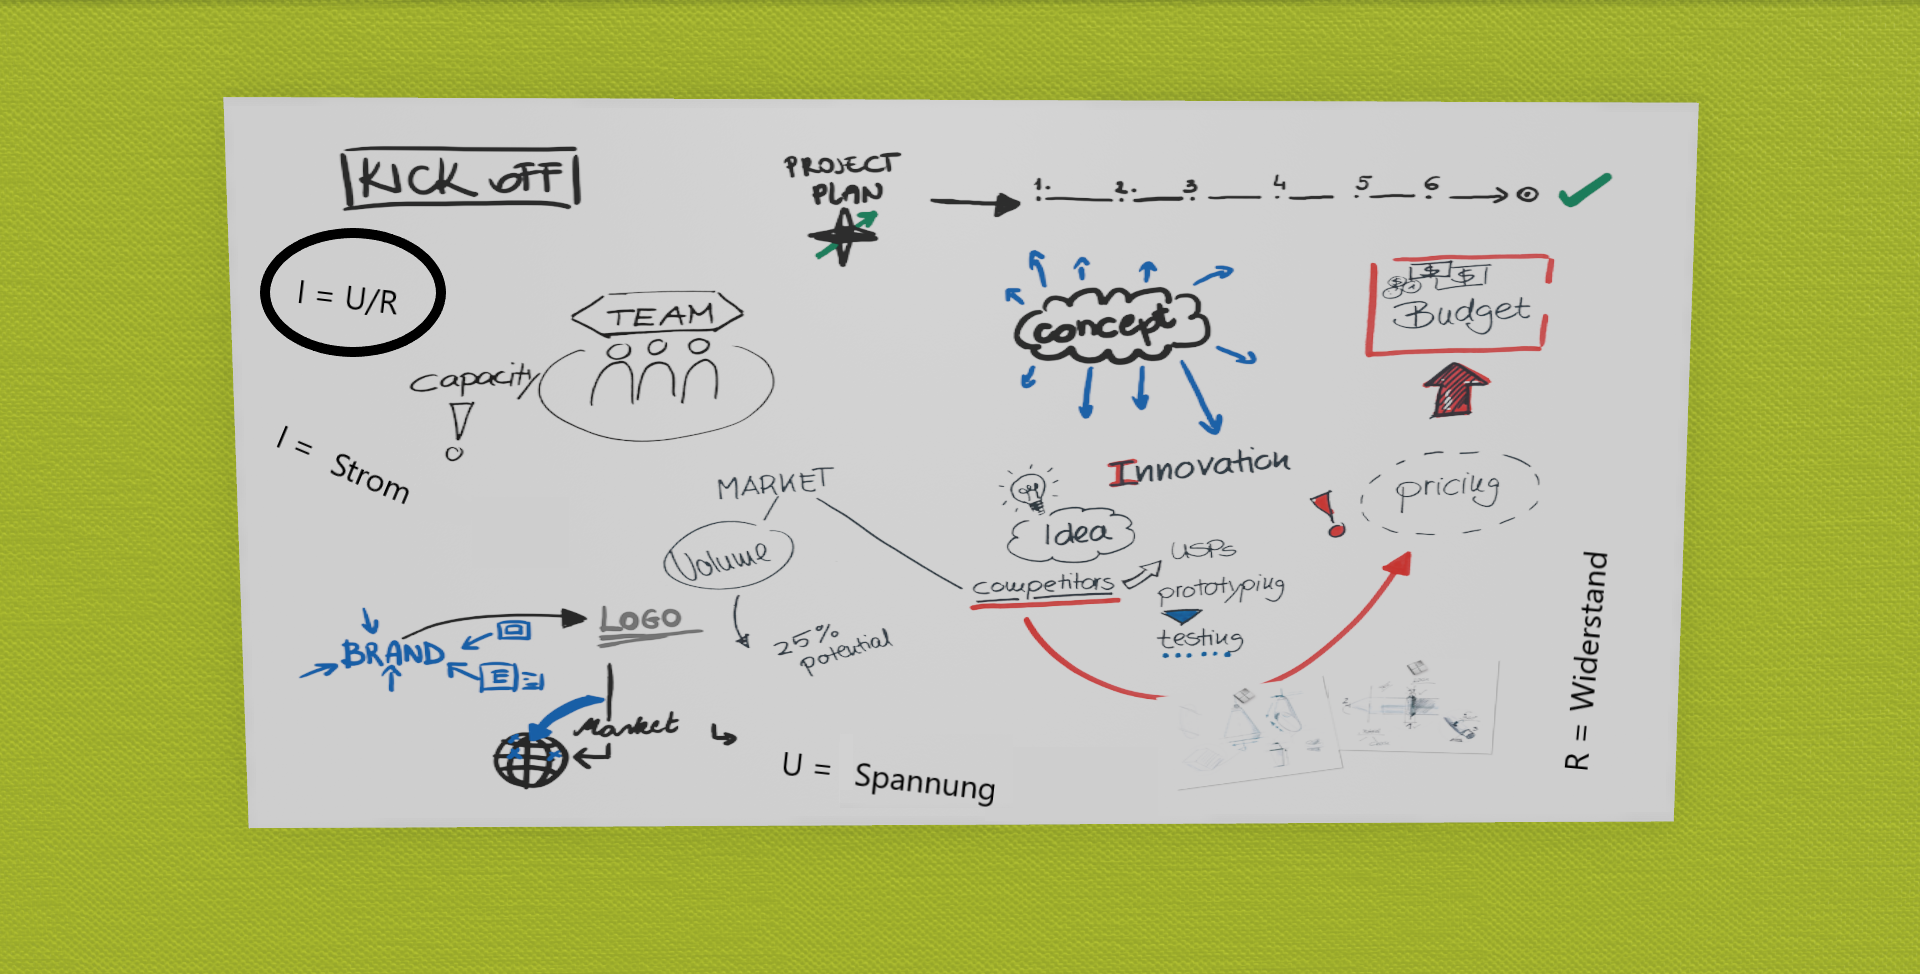 KICK OFF
PROJECT
PLAN
1. 2. 3 4 5 6
I = U/R
TEAM
Capacity
!
concept
$ $
Budget
I = Strom
MARKET
Innovation
pricing
!
Volume
Idea
USPs
competitors
prototyping
testing
25%
potential
BRAND
LOGO
E
Market
U = Spannung
R = Widerstand